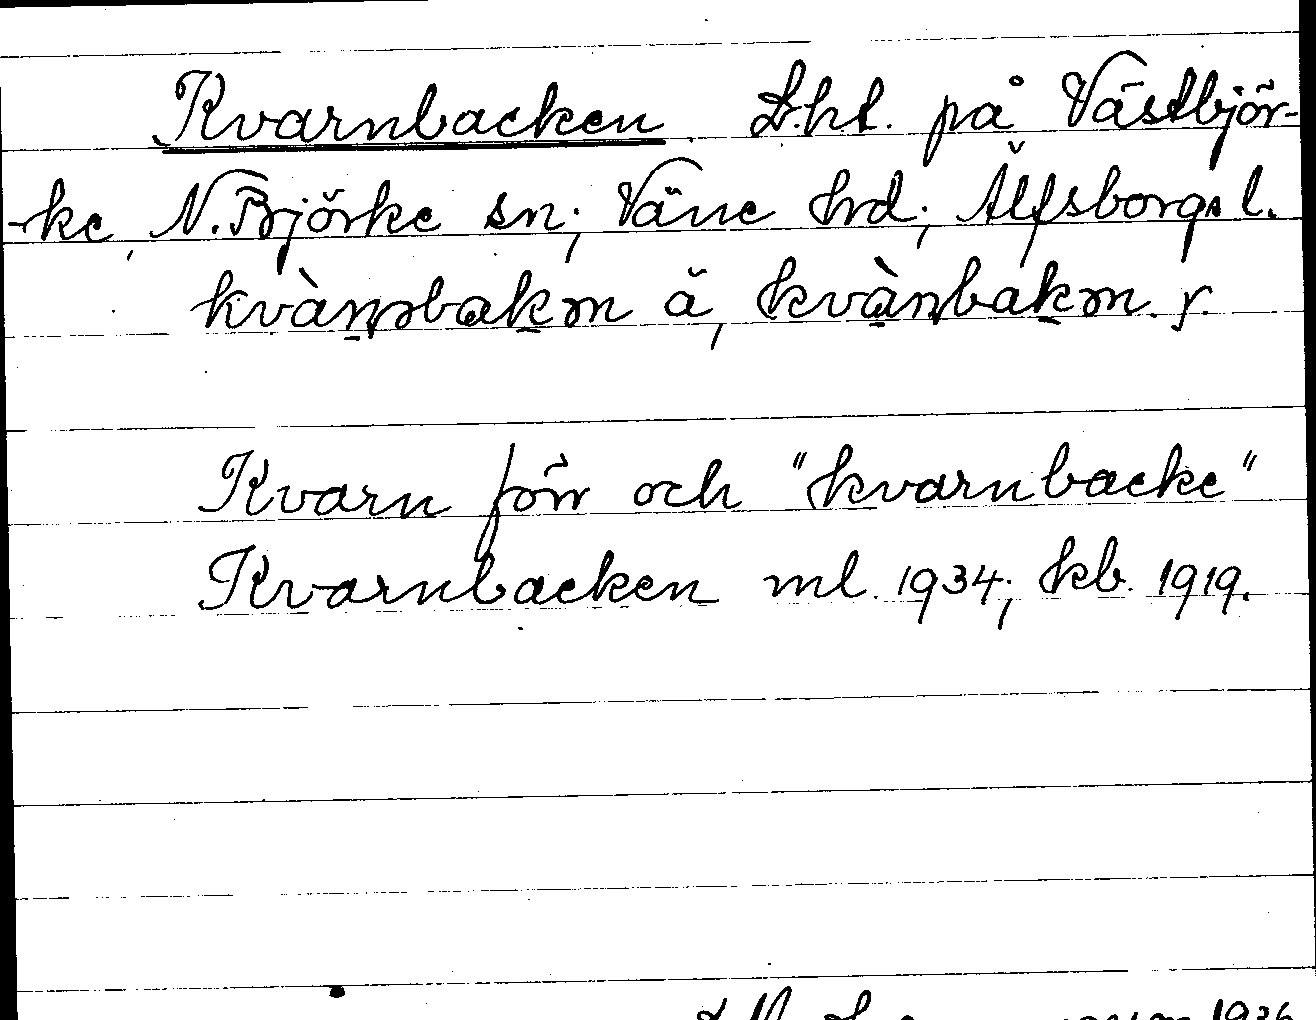 Kvarnbacken. L.ht. på Västbjör-
-ke, N. Björke sn; Väne hrd; Älfsborgs l.
kvànnbakm ä, kvànbakm. y.
Kvarn förr och "kvarnbacke"
Kvarnbacken ml. 1934; kb. 1919.
1936